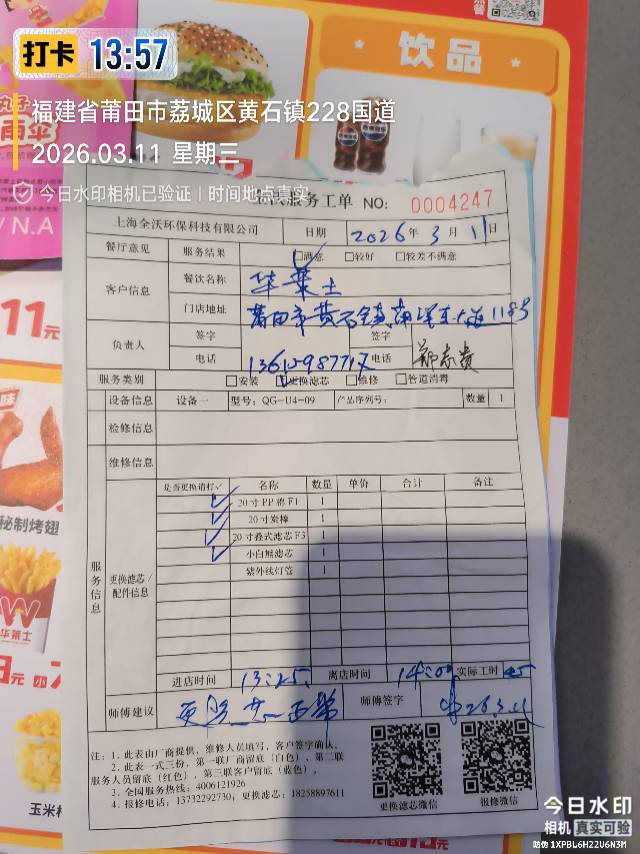 打卡 13:57
饮品
福建省莆田市荔城区黄石镇228国道
2026.03.11 星期三
今日水印相机已验证 | 时间地点真实
服务工单 NO: 0004247
上海全沃环保科技有限公司 日期 2026年3月11日
餐厅意见 服务结果 □满意 □较好 □较差不满意
客户信息 餐饮名称 华莱士
门店地址 莆田市黄石镇 118号
负责人 签字 签字
电话 电话
服务类别 □安装 更换滤芯 □维修 □管道消毒
设备信息 设备一 型号: QG-U4-09 产品序列号: 数量 1
检修信息
维修信息
服务信息
更换滤芯/配件信息
是否更换请打✓ 名称 数量 单价 合计 备注
✓ 20寸PP棉F1 1
✓ 20寸炭棒 1
✓ 20寸叠式滤芯F3 1
✓ 小白熊滤芯 1
紫外线灯管 1
进店时间 13:25 离店时间 14:00 实际工时
师傅建议 师傅签字
注: 1. 此表由厂商提供, 维修人员填写, 客户签字确认。
2. 此表一式三份, 第一联厂商留底 (白色), 第二联
服务人员留底 (红色), 第三联客户留底 (蓝色)。
3. 全国服务热线: 4006121926
4. 报修电话: 13732292730; 更换滤芯: 18258897611
更换滤芯微信 报修微信
11元
秘制烤翅
华莱士
元
玉米
今日水印
相机 真实可验
防伪 1XPBL6H22U6N3M